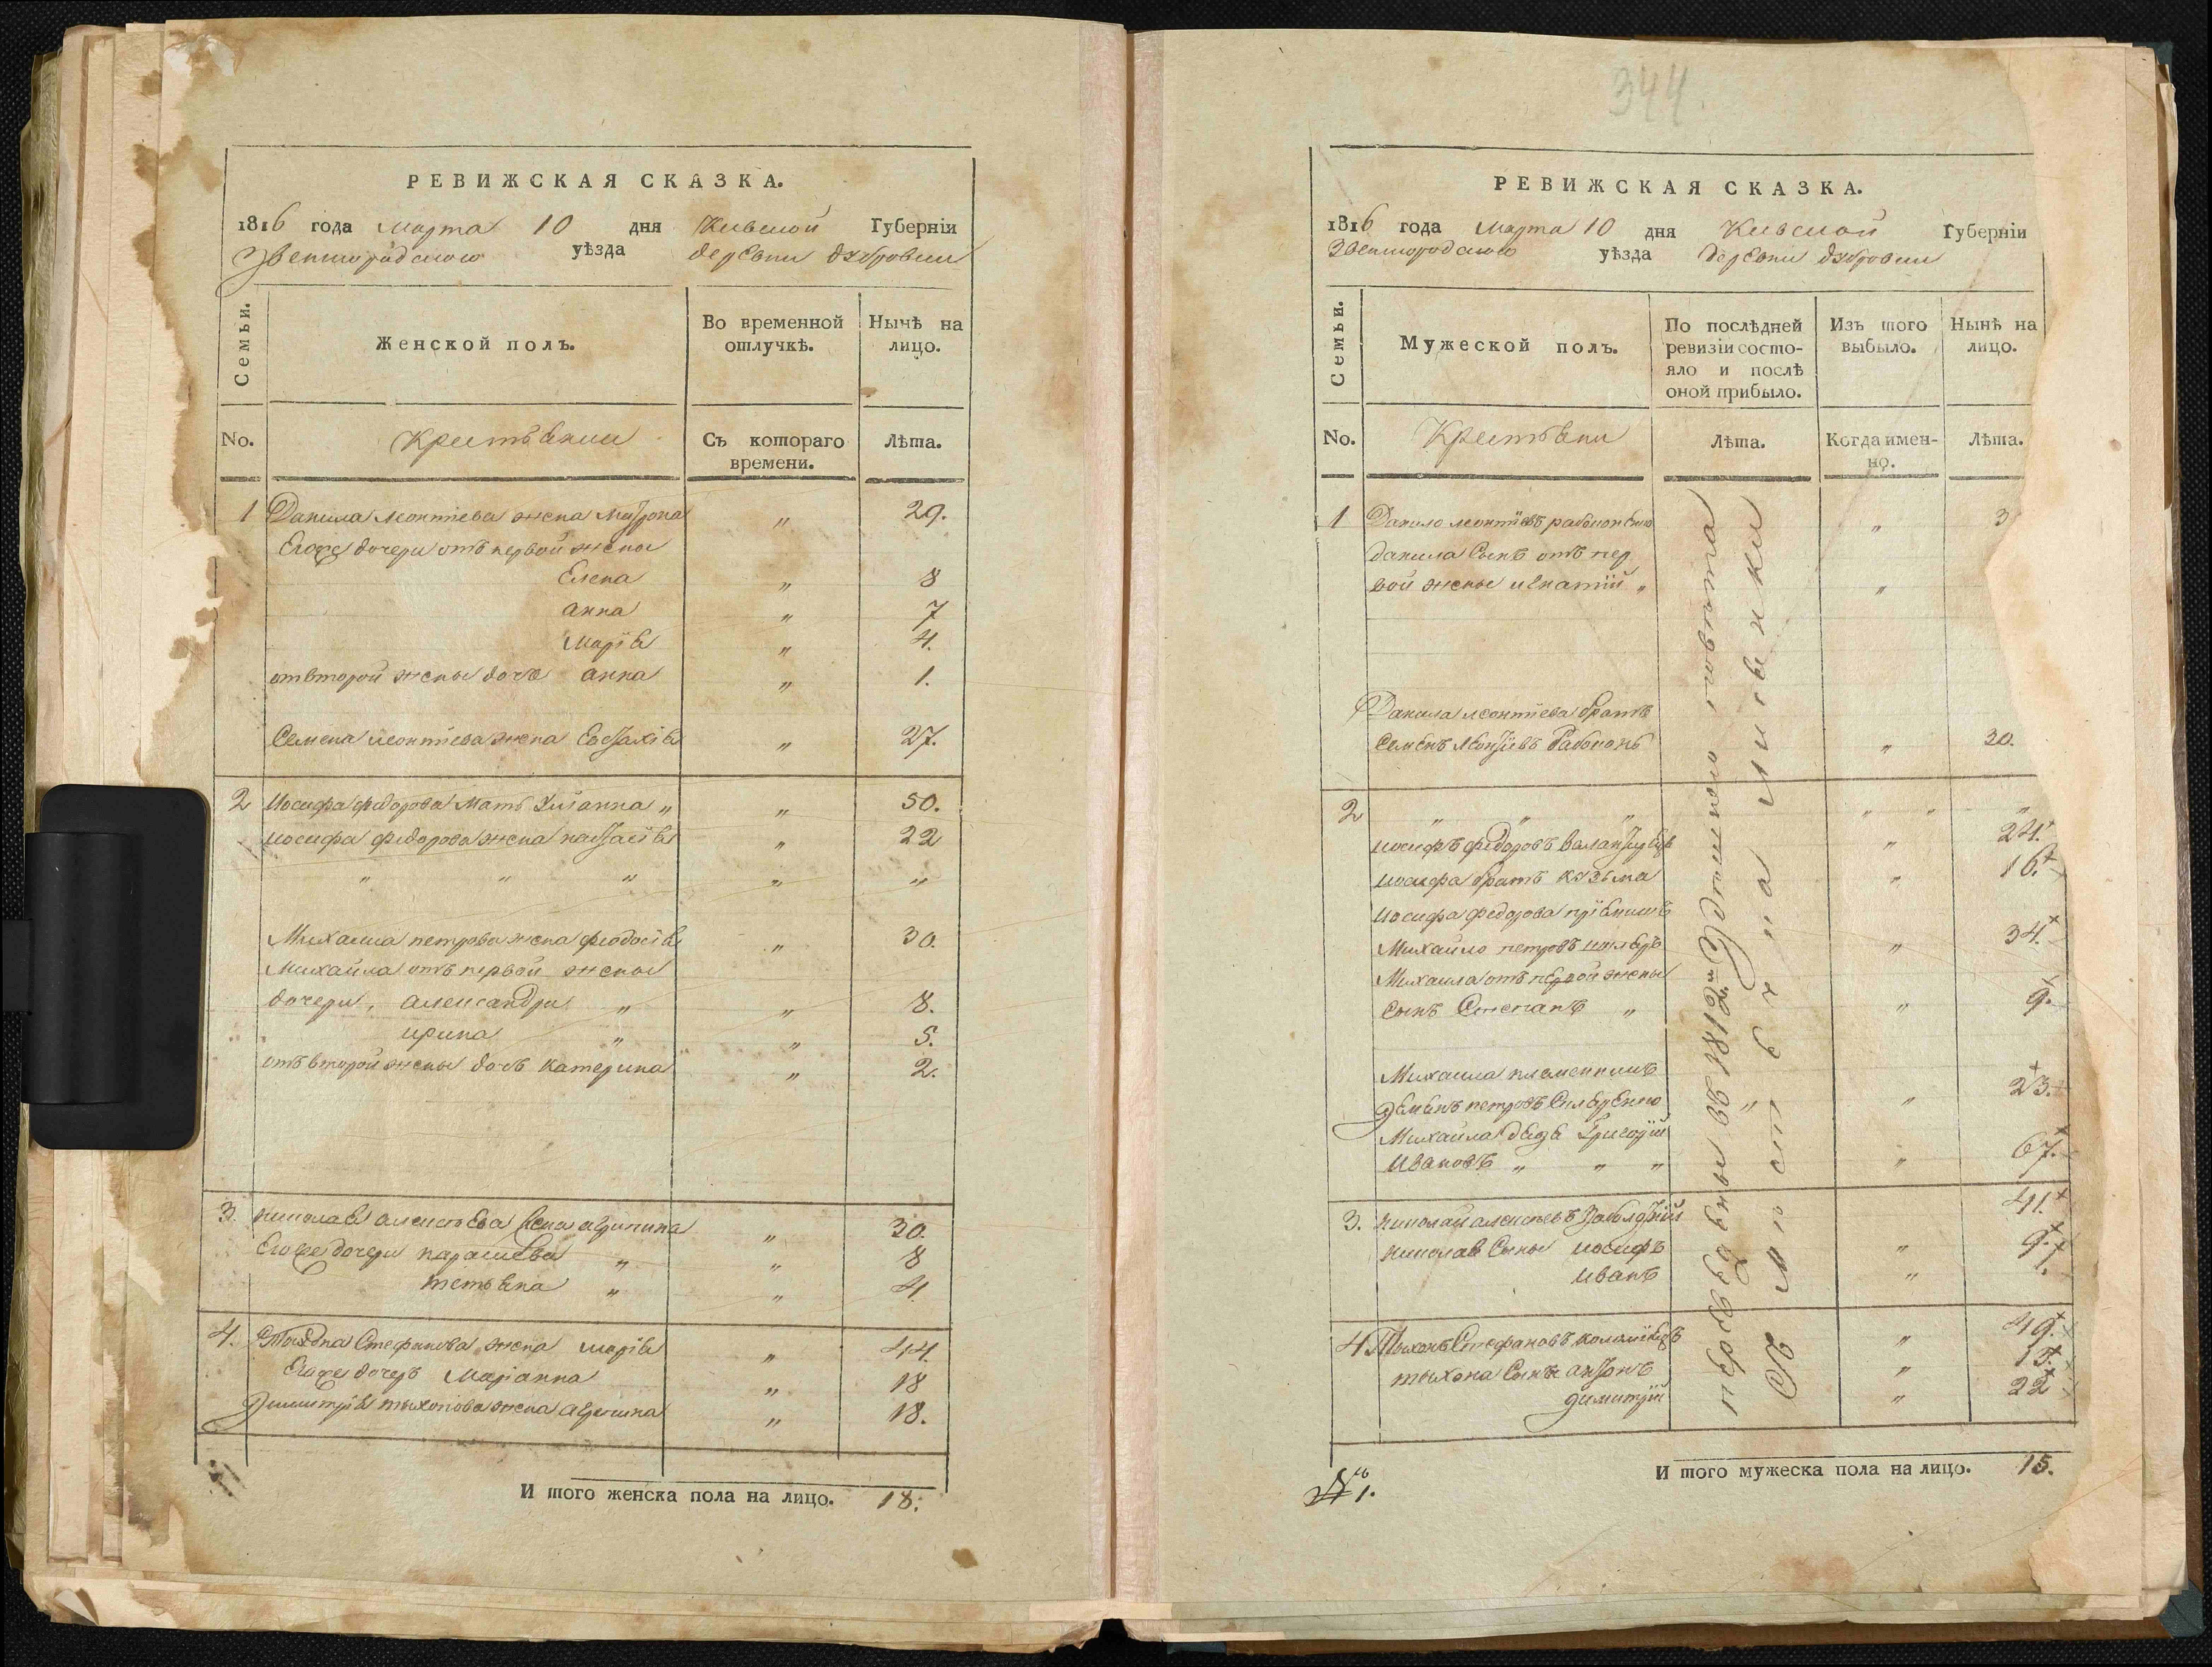 РЕВИЖСКАЯ СКАЗКА.
1816 года Марта 10 дня Киевской Губерніи
Звенигородского уѣзда деревни дубровки
Семьи.
Женской полъ.
Во временной отлучкѣ.
Нынѣ на лицо.
No.
Крестьяни
Съ котораго времени.
Лѣта.
1 Данила леонтіева жена Матрона „ 29.
Егоже дочери отъ первой жены
Елена „ 8
анна „ 7
Марія „ 4.
отвторой жены дочь анна „ 1.
Семена леонтіева жена „ 27.
2 Иосифа федорова мать „ „ 50.
иосифа федорова жена настасія „ 22
„ „ „ „ „
Михаила петрова жена феодосія „ 30.
Михаила отъ первой жены
дочери, александра „ „ 8.
ирина „ „ 5.
отъ второй жены дочь катерина „ 2.
3. николая алексѣева жена агрипина „ 30.
Егоже дочери парашева „ „ 8
тетьяна „ „ 4
4. Стефанова жена марія „ 44.
Егоже дочерь Маріанна „ 18
Димитрія тихонова жена агрипина „ 18.
И того женска пола на лицо. 18.
344.
РЕВИЖСКАЯ СКАЗКА.
1816 года Марта 10 дня Киевской Губерніи
Звенигородского уѣзда деревни дубровки
Семьи.
Мужеской полъ.
По послѣдней ревизіи состояло и послѣ оной прибыло.
Изъ того выбыло.
Нынѣ на лицо.
No.
Крестьяни
Лѣта.
Когда именно.
Лѣта.
1 Данило леонтіевъ „ 3
данила сынъ отъ пер
вой жены игнатій „ „
Данила леонтіева братъ
Семенъ леонтіевъ „ 30.
2 „ „ „ „ „ „
иосифъ федоровъ „ 24.
иосифа братъ козьма „ 16.
Иосифа федорова пріемишъ
Михайло петровъ „ 34.
Михаила отъ первой жены
сынъ Степанъ „ „ 9.
Михаила племенникъ
петровъ „ „ 23.
Михаила дядя Григорій
Ивановъ „ „ „ „ 67.
3. николай алексѣевъ 41
николая сыны иосифъ „ 9.
иванъ „ 1.
4 Тихонъ Стефановъ „ 49.
тихона сынъ антонъ „ 15.
димитрій „ 22
переведены въ 1812м
И того мужеска пола на лицо. 15.
1.